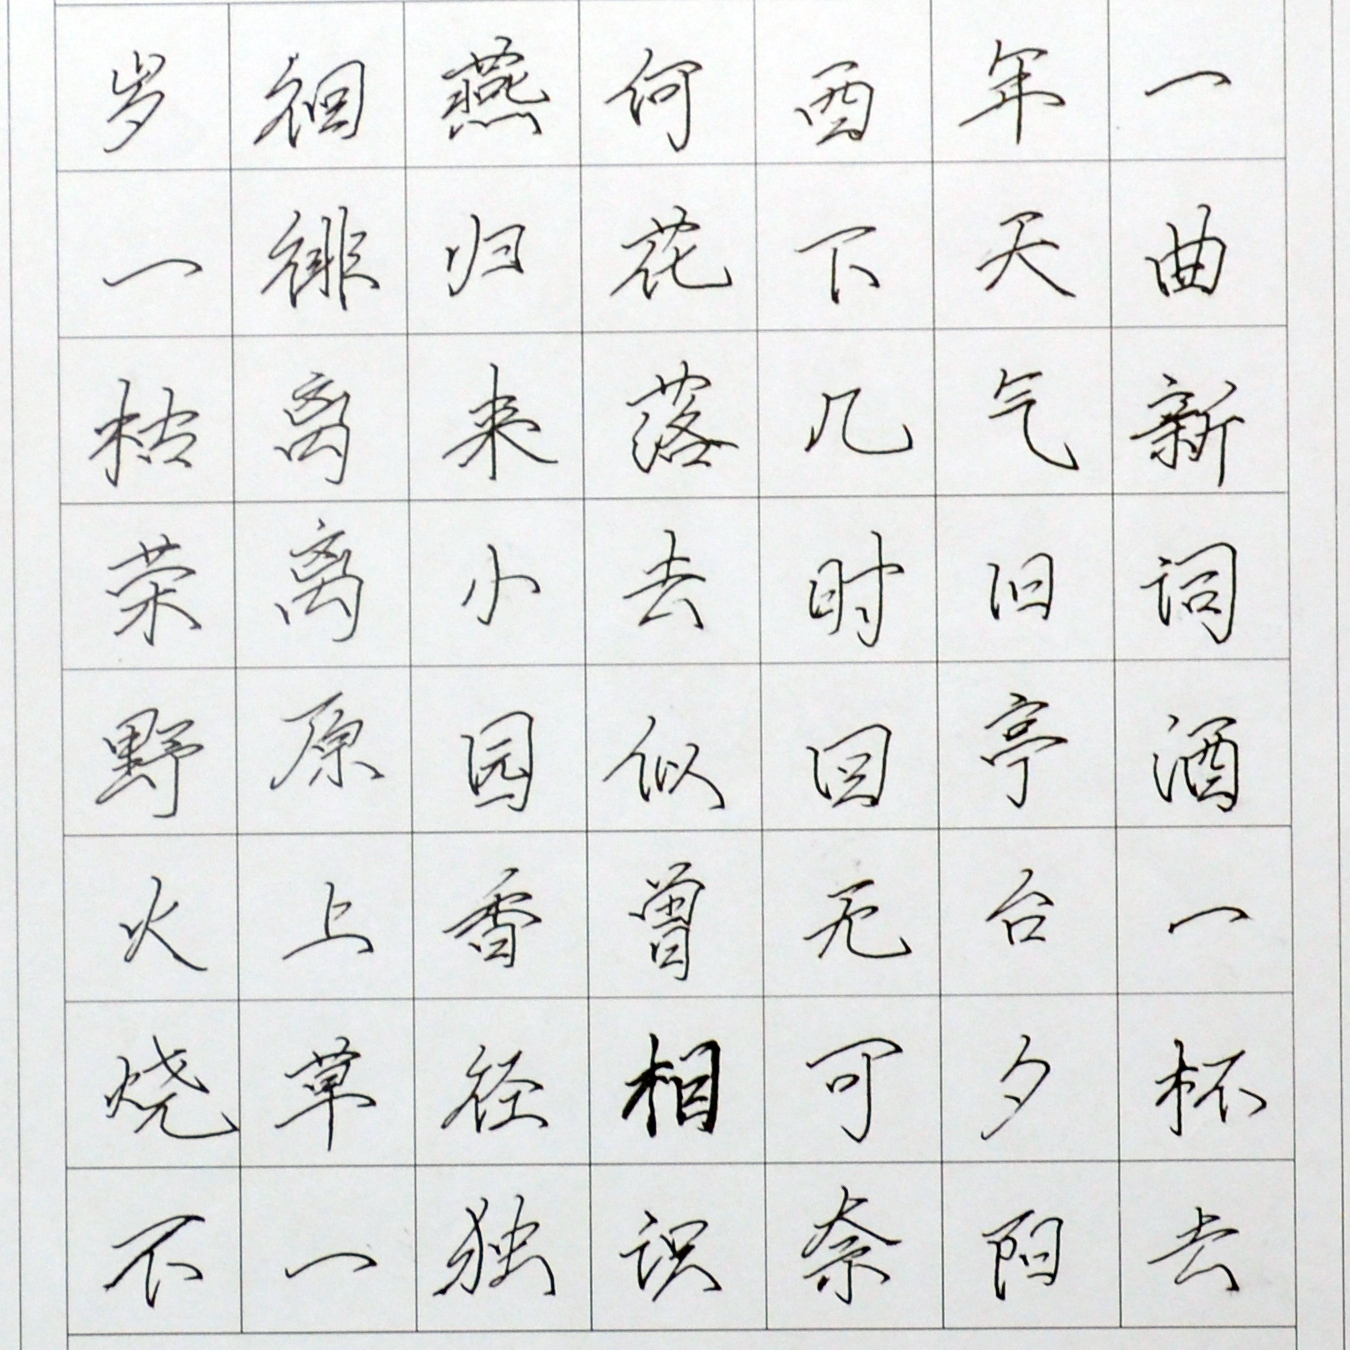 一曲新词酒一杯去
年天气旧亭台夕阳
西下几时回无可奈
何花落去似曾相识
燕归来小园香径独
徊徘离离原上草一
岁一枯荣野火烧不